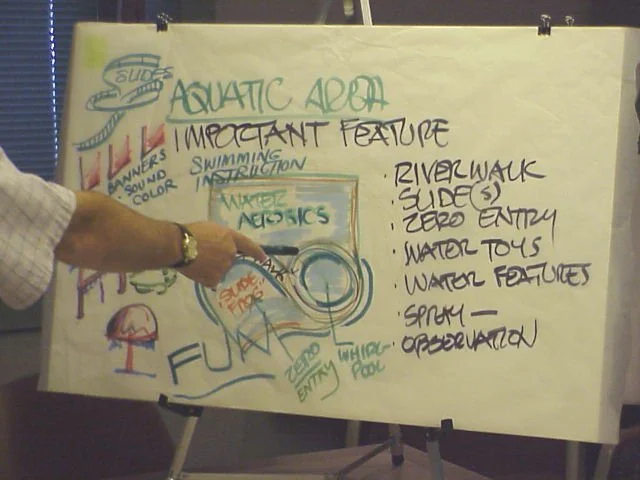 SLIDES
AQUATIC AREA
IMPORTANT FEATURE
SWIMMING
INSTRUCTION
BANNERS
• SOUND
COLOR
WATER
AEROBICS
• RIVERWALK
• SLIDE(S)
• ZERO ENTRY
• WATER TOYS
• WATER FEATURES
• SPRAY —
• OBSERVATION
SLIDE
FUN
ZERO
ENTRY
WHIRL-
POOL